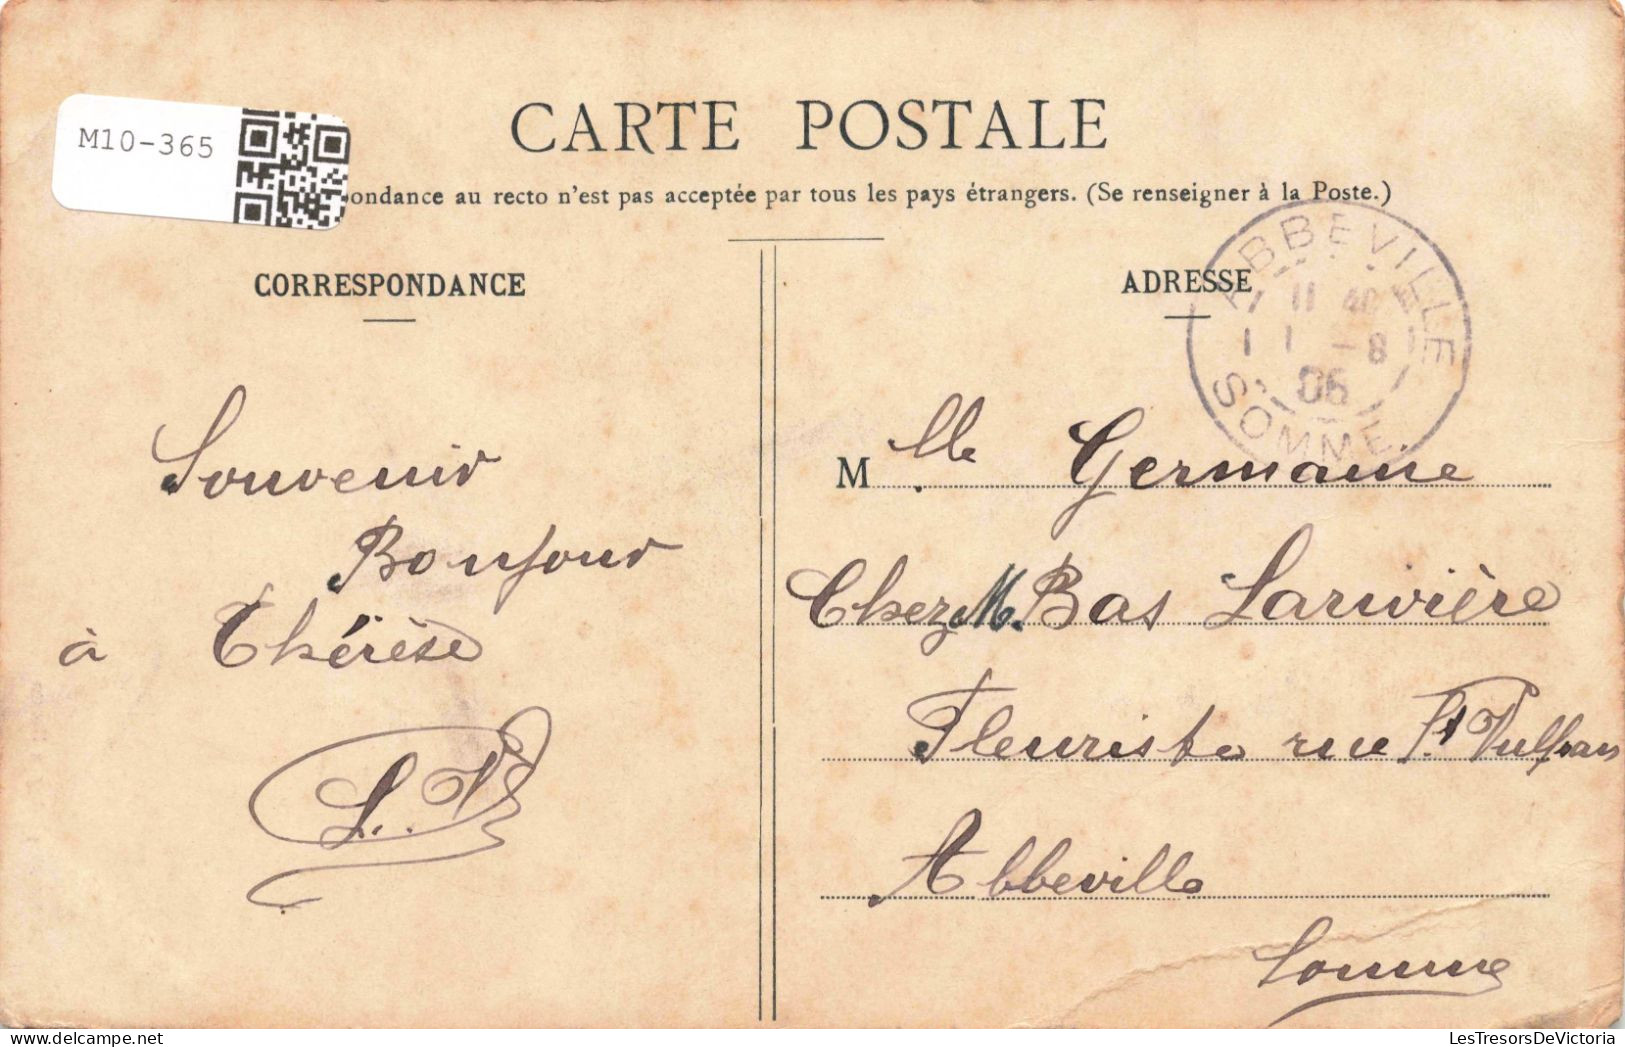 M10-365
CARTE POSTALE
pondance au recto n'est pas acceptée par tous les pays étrangers. (Se renseigner à la Poste.)
CORRESPONDANCE
ADRESSE
ABBEVILLE
11 40
1 -8
06
SOMME
Souvenir
Bonjour
à Thérèse
L. V
Mlle Germaine
Chez M. Bas Larivière
Fleuriste rue St Vulfran
Abbeville
Somme
LesTresorsDeVictoria